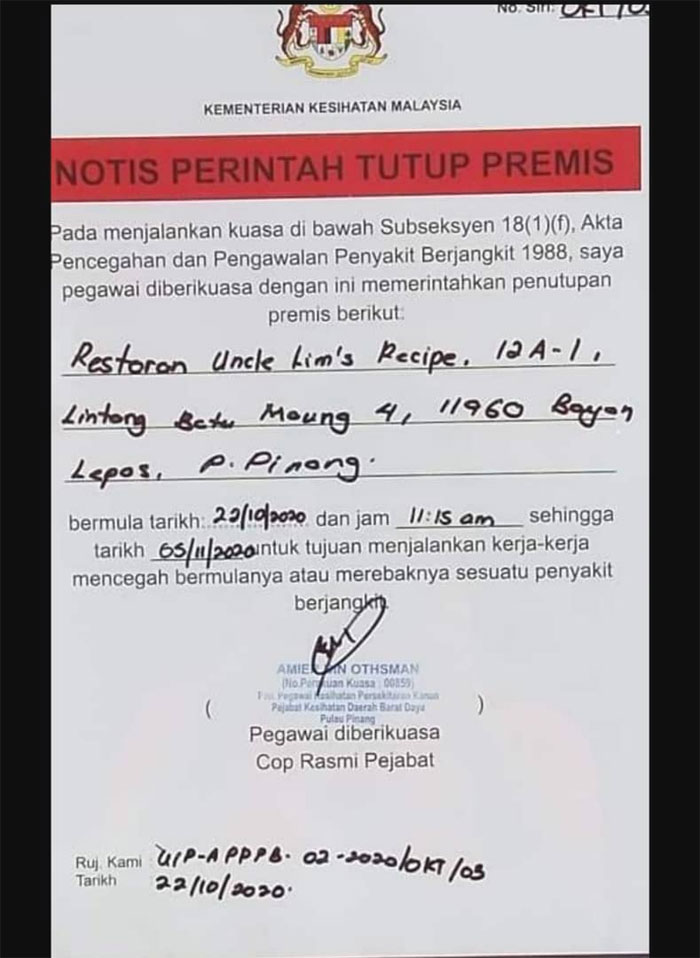 No. Siri: OKT/03
KEMENTERIAN KESIHATAN MALAYSIA
NOTIS PERINTAH TUTUP PREMIS
Pada menjalankan kuasa di bawah Subseksyen 18(1)(f), Akta
Pencegahan dan Pengawalan Penyakit Berjangkit 1988, saya
pegawai diberikuasa dengan ini memerintahkan penutupan
premis berikut:
Restoran Uncle Lim's Recipe, 12A-1,
Lintang Batu Maung 4, 11960 Bayan
Lepas, P. Pinang.
bermula tarikh: 22/10/2020 dan jam 11:15 am sehingga
tarikh 05/11/2020 untuk tujuan menjalankan kerja-kerja
mencegah bermulanya atau merebaknya sesuatu penyakit
berjangkit.
OTHSMAN
(No. Kuasa : 00859)
Pegawai Kesihatan Persekitaran Kanan
Pejabat Kesihatan Daerah Barat Daya
Pulau Pinang
( )
Pegawai diberikuasa
Cop Rasmi Pejabat
Ruj. Kami : UIP-APPPB. 02-2020/OKT/03
Tarikh : 22/10/2020.